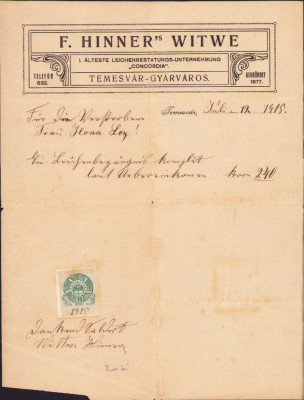 F. HINNER'S WITWE
I. ÄLTESTE LEICHENBESTATUNGS-UNTERNEHMUNG
„CONCORDIA".
TELEFON
GEGRÜNDET
1877.
TEMESVÁR-GYÁRVÁROS.
Temesvár, Juli 1915.
Für Die Verstorbene
Frau Ilona Ley!
Ein Leichenbegängnis komplet
laut Uebereinkomen Kron 240
1915
Dankend Saldirt
Witwe Hinner